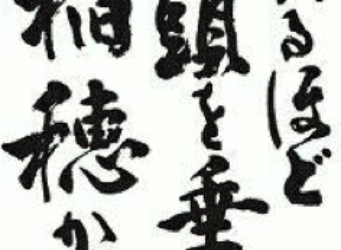 るほど
頭を垂
稲穂か